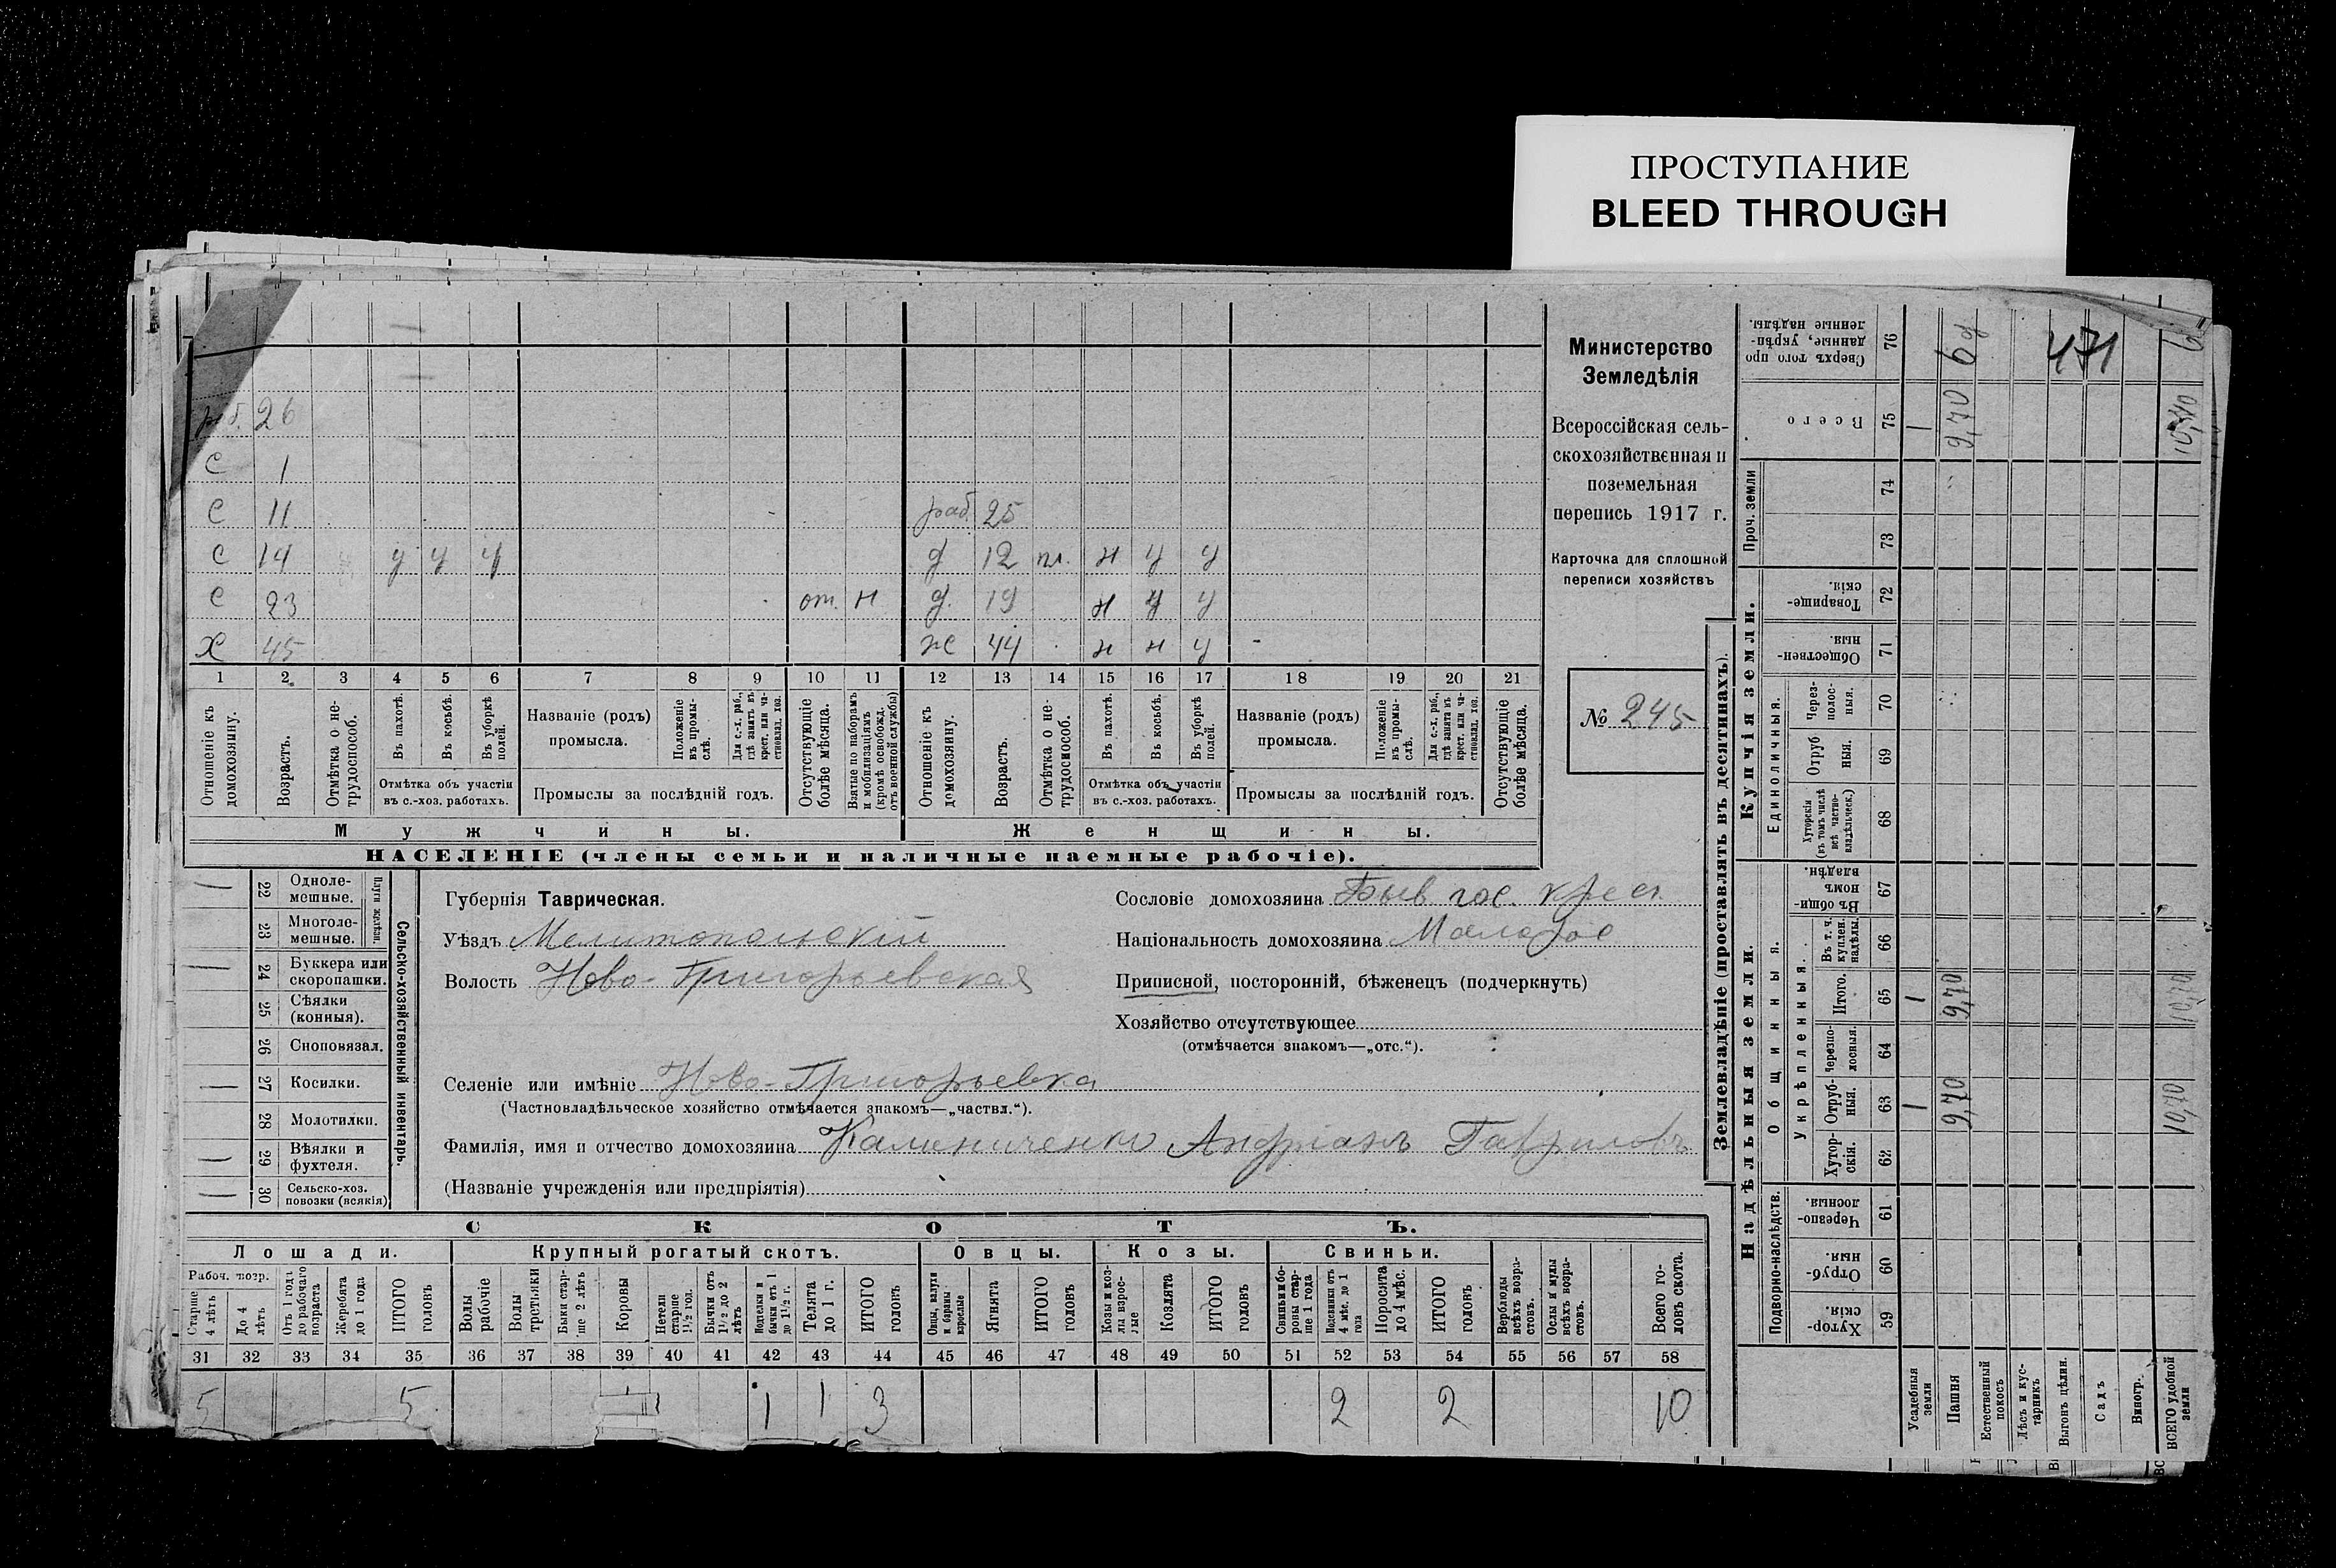 ПРОСТУПАНИЕ
BLEED THROUGH
раб. 26
с 1
с 11 раб. 25
с 14 у у у д 12 пл. н у у
с 23 от. н д. 19 н у у
х 45 ж 44 н н у
1 2 3 4 5 6 7 8 9 10 11 12 13 14 15 16 17 18 19 20 21
Отношеніе къ домохозяину.
Возрастъ.
Отмѣтка о нетрудоспособ.
Въ пахотѣ.
Въ косьбѣ.
Въ уборкѣ полей.
Отмѣтка объ участіи
въ с.-хоз. работахъ.
Названіе (родъ)
промысла.
Положеніе въ промыслѣ.
Для с.-х. раб., гдѣ занятъ въ крест. или частновлад. хоз.
Промыслы за послѣдній годъ.
Отсутствующіе болѣе мѣсяца.
Взятые по наборамъ и мобилизаціямъ (кромѣ освобожд. отъ военной службы)
Отношеніе къ домохозяину.
Возрастъ.
Отмѣтка о нетрудоспособ.
Въ пахотѣ.
Въ косьбѣ.
Въ уборкѣ полей.
Отмѣтка объ участіи
въ с.-хоз. работахъ.
Названіе (родъ)
промысла.
Положеніе въ промыслѣ.
Для с.-х. раб., гдѣ занята въ крест. или частновлад. хоз.
Промыслы за послѣдній годъ.
Отсутствующіе болѣе мѣсяца.
Мужчины. Женщины.
НАСЕЛЕНІЕ (члены семьи и наличные наемные рабочіе).
Министерство
Земледѣлія
Всероссійская сель-
скохозяйственная и
поземельная
перепись 1917 г.
Карточка для сплошной
переписи хозяйствъ
№ 245
— 22 Одноле-
мешные.
23 Многоле-
мешные.
Плуги желѣзн.
— 24 Буккера или
скоропашки.
25 Сѣялки
(конныя).
26 Сноповязал.
— 27 Косилки.
28 Молотилки.
— 29 Вѣялки и
фухтеля.
— 30 Сельско-хоз.
повозки (всякія)
Сельско-хозяйственный инвентарь.
Губернія Таврическая.
Уѣздъ Мелитопольскій
Волость Ново-Григорьевская
Селеніе или имѣніе Ново-Григорьевка
(Частновладѣльческое хозяйство отмѣчается знакомъ—„частвл.“).
Фамилія, имя и отчество домохозяина Калениченко Андріанъ Гавриловъ
(Названіе учрежденія или предпріятія)
Сословіе домохозяина Быв гос. крес.
Національность домохозяина Малорос
Приписной, посторонній, бѣженецъ (подчеркнуть)
Хозяйство отсутствующее
(отмѣчается знакомъ—„отс.“).
СКОТЪ.
Лошади. Крупный рогатый скотъ. Овцы. Козы. Свиньи.
Рабоч. возр.
Старше 4 лѣтъ
До 4 лѣтъ
Отъ 1 года до рабочаго возраста
Жеребята до 1 года
ИТОГО головъ
Волы рабочіе
Волы гостьянки
Быки старше 2 лѣтъ
Коровы
Нетели старше 1½ год.
Бычки отъ 1½ до 2 лѣтъ
Подтелки и бычки отъ 1 до 1½ г.
Телята до 1 г.
ИТОГО головъ
Овцы, валухи и бараны взрослые
Ягнята
ИТОГО головъ
Козы и козлы взрослые
Козлята
ИТОГО головъ
Свиньи и боровы старше 1 года
Подсвинки отъ 4 мѣс. до 1 года
Поросята до 4 мѣс.
ИТОГО головъ
Верблюды всѣхъ возрастовъ.
Ослы и мулы всѣхъ возрастовъ.
Всего головъ скота.
31 32 33 34 35 36 37 38 39 40 41 42 43 44 45 46 47 48 49 50 51 52 53 54 55 56 57 58
5 5 1 1 1 3 2 2 10
Землевладѣніе (проставлять въ десятинахъ).
Надѣльныя земли. Купчія земли.
Подворно-наслѣдств.
Общинныя.
Укрѣпленныя.
Единоличныя.
Проч. земли
Хуторскія. 59
Отрубныя. 60
Черезполосныя. 61
Хуторскія. 62
Отрубныя. 63
Черезполосныя. 64
Итого. 65
Въ т. ч. куплен. надѣлы. 66
Въ общинномъ владѣн. 67
Хуторскія (въ томъ числѣ всѣ частновладѣльческ.) 68
Отрубныя. 69
Черезполосныя. 70
Общественныя. 71
Товарищескія. 72
73
74
Всего 75
Сверхъ того проданные, укрѣпленные надѣлы. 76
Усадебныя земли 1 1 1
Пашня 9,70 9,70 9,70 6 д
Естественный покосъ
Лѣсъ и кустарникъ
Выгонъ цѣлин.
Садъ
Виногр.
ВСЕГО удобной земли 10,70 10,70 10,70 6
471